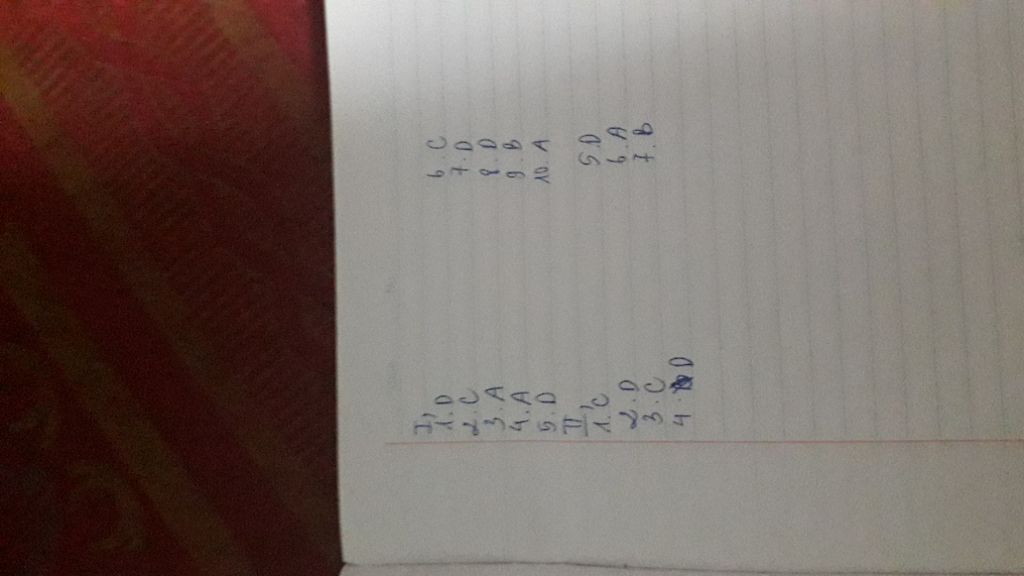 I,
1. D 6. C
2. C 7. D
3. A 8. D
4. A 9. B
5. D 10. A
II,
1. C 5. D
2. D 6. A
3. C 7. B
4. D